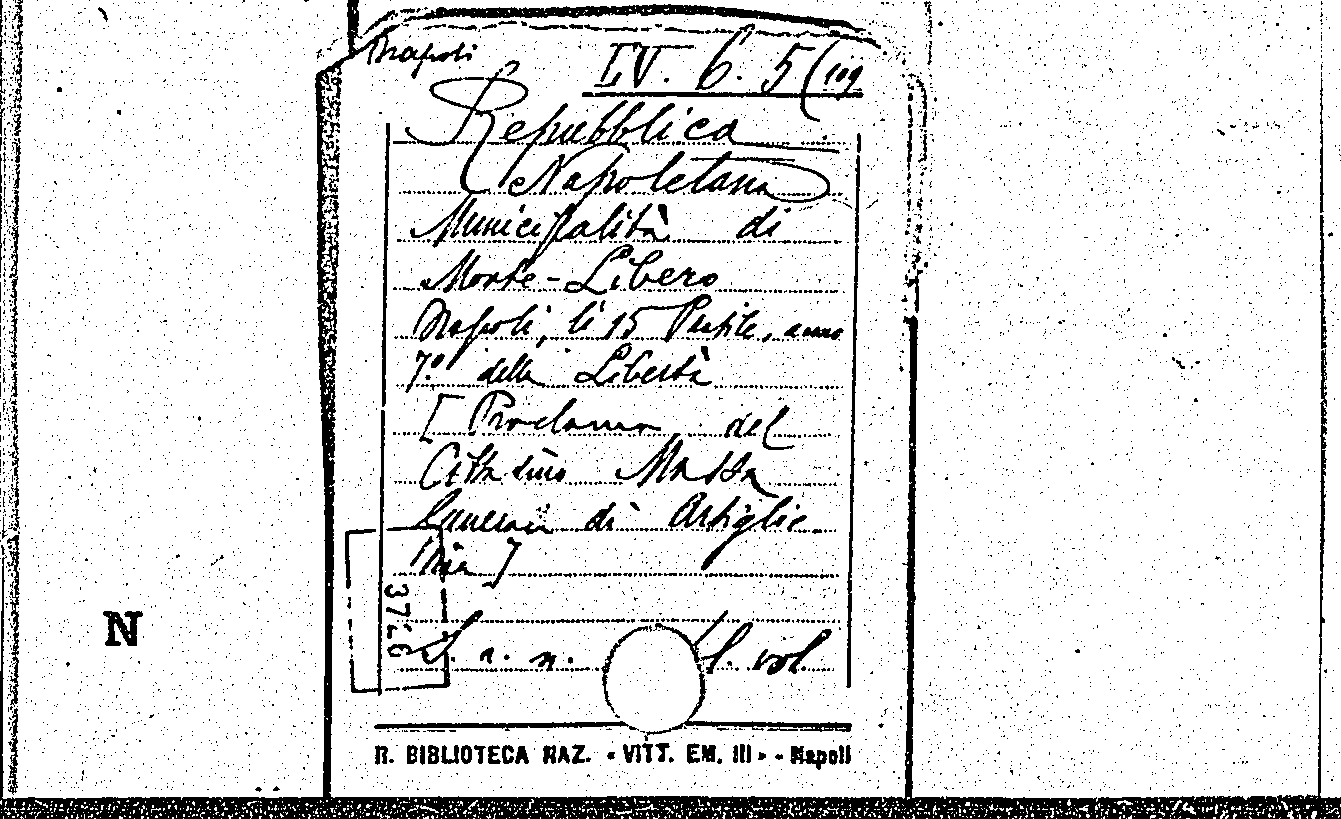 Napoli
IV. 6. 5 (109
Repubblica
Napoletana
Municipalità di
Monte-Libero
Napoli, li 15 Pratile, anno
7º della Libertà
[Proclama del
Cittadino Massa
Generale di Artiglie
ria]
3726
S. a. n. fl. vol.
N
R. BIBLIOTECA NAZ. « VITT. EM. III » - Napoli